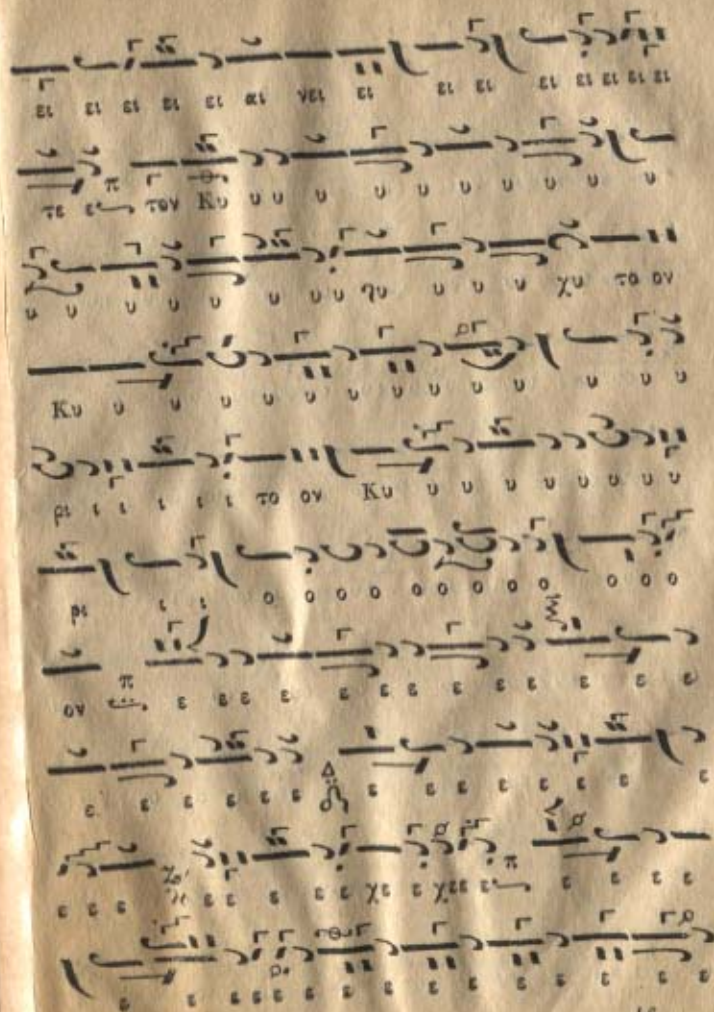 ει ει ει ει ει αι νει ει ει ει ει ει ει ει ει
τε ε π τον Κυ υ υ υ υ υ υ υ υ υ υ
υ υ υ υ υ υ υ υ ηυ υ υ υ χυ το ον
Κυ υ υ υ υ υ υ υ υ υ υ υ υ υ
ρι ι ι ι ι ι το ον Κυ υ υ υ υ υ υ υ
ρι ι ι ο ο ο ο ο ο ο ο ο ο ο
ον π ε ε ε ε ε ε ε ε ε ε ε ε
ε ε ε ε ε ε Δ ε ε ε ε ε ε ε ε
ε ε ε ε ε ε ε ε χε ε χεε ε π ε ε ε ε
ε ε ε ε ε ε ε ε ε ε ε ε ε ε